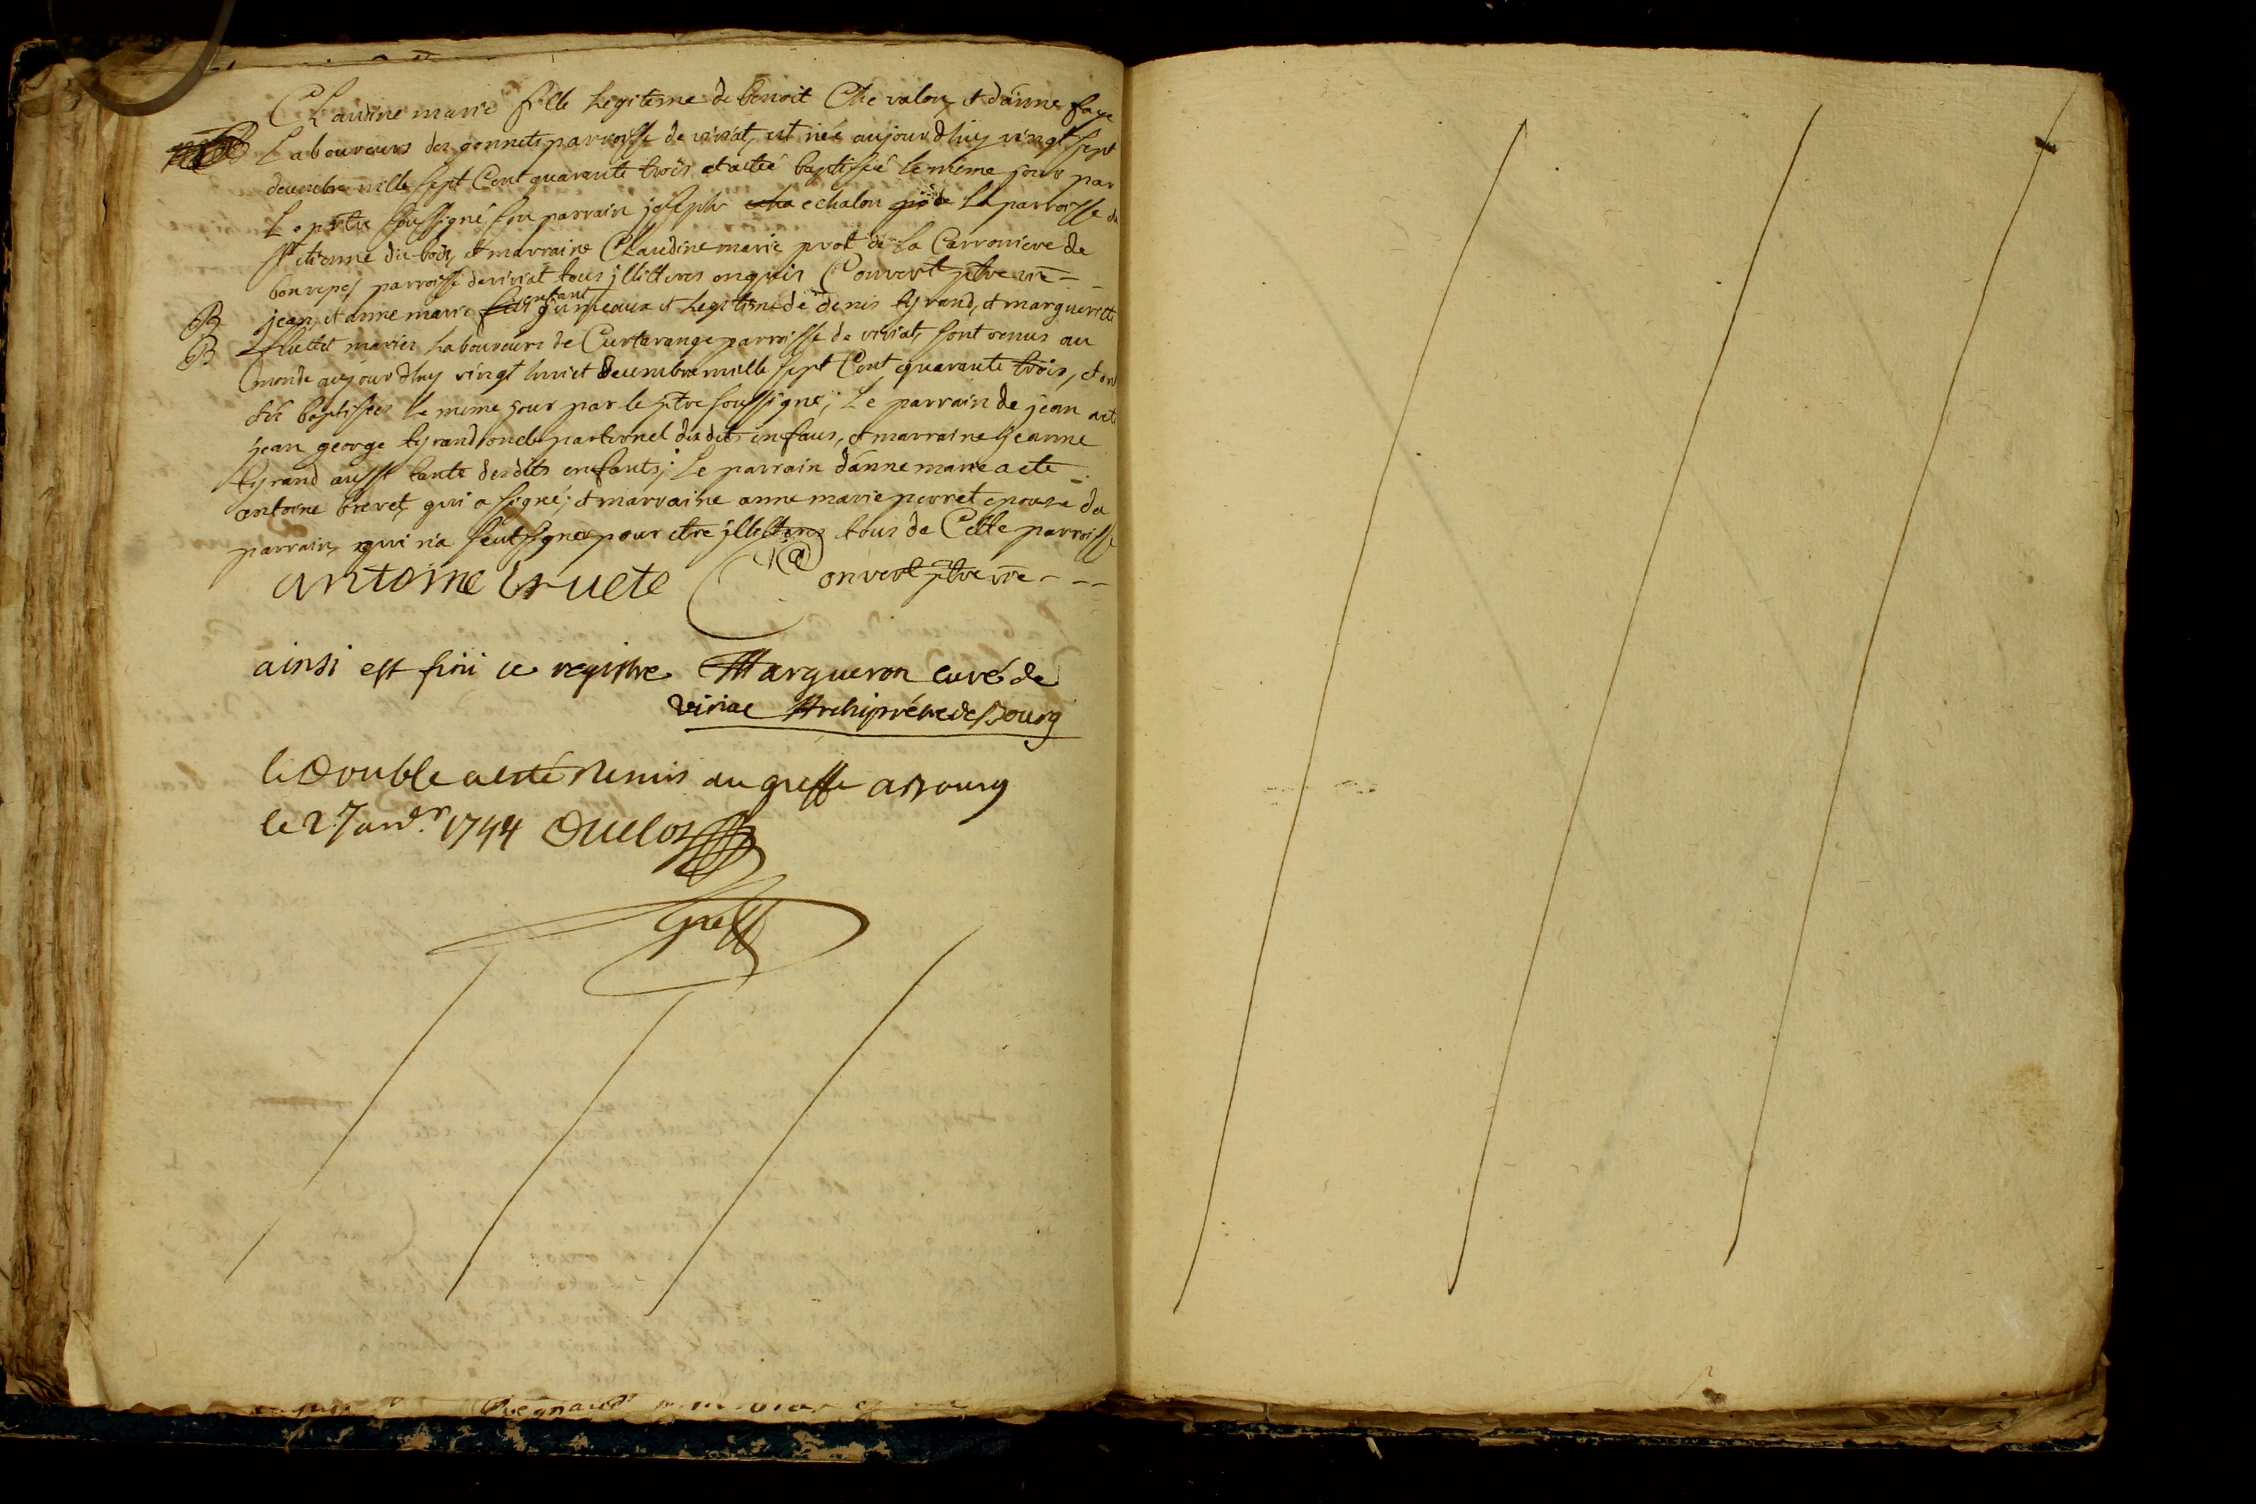 Claudine marie fille Legitime de benoit Chevalon, et d'anne faye
Laboureurs des gonnets parroisse de viriat, est née aujourd'huy vingt sept
decembre mille sept Cent quarante trois et a eté baptisée le même jour par
Le ptre soussigné son parrain joseph echalon de La parroisse de
st etienne du bois, et marraine Claudine marie prot de La Carroniere de
bonrepos parroisse de viriat tous jllitteres enquis Convert ptre vre
B jean, et anne marie enfant gumeaux et Legitime de denis tyrand, et margueritte
B mariés Laboureurs de Curtarange parroisse de viriat, sont venus au
monde aujourd'huy vingt huict decembre mille sept Cent quarante trois, et ont
été baptisés le meme jour par le ptre soussigné; Le parrain de jean a eté
jean george tyrand oncle paternel desdits enfans, et marraine jeanne
tyrand aussi tante desdits enfants; Le parrain d'anne marie a eté
antoine brevet, qui a signé; et marraine anne marie perret epouse du
parrain, qui n'a sçeut signer pour etre jllitteres tous de Cette parroisse
antoine bruete Convert ptre vre
ainsi est fini ce registre Margueron curé de
viriac Archiprêtre de Bourg
le Double a esté Remis au greffe a Bourg
le 27 janvr. 1744 Duclos
greff
Regnaud